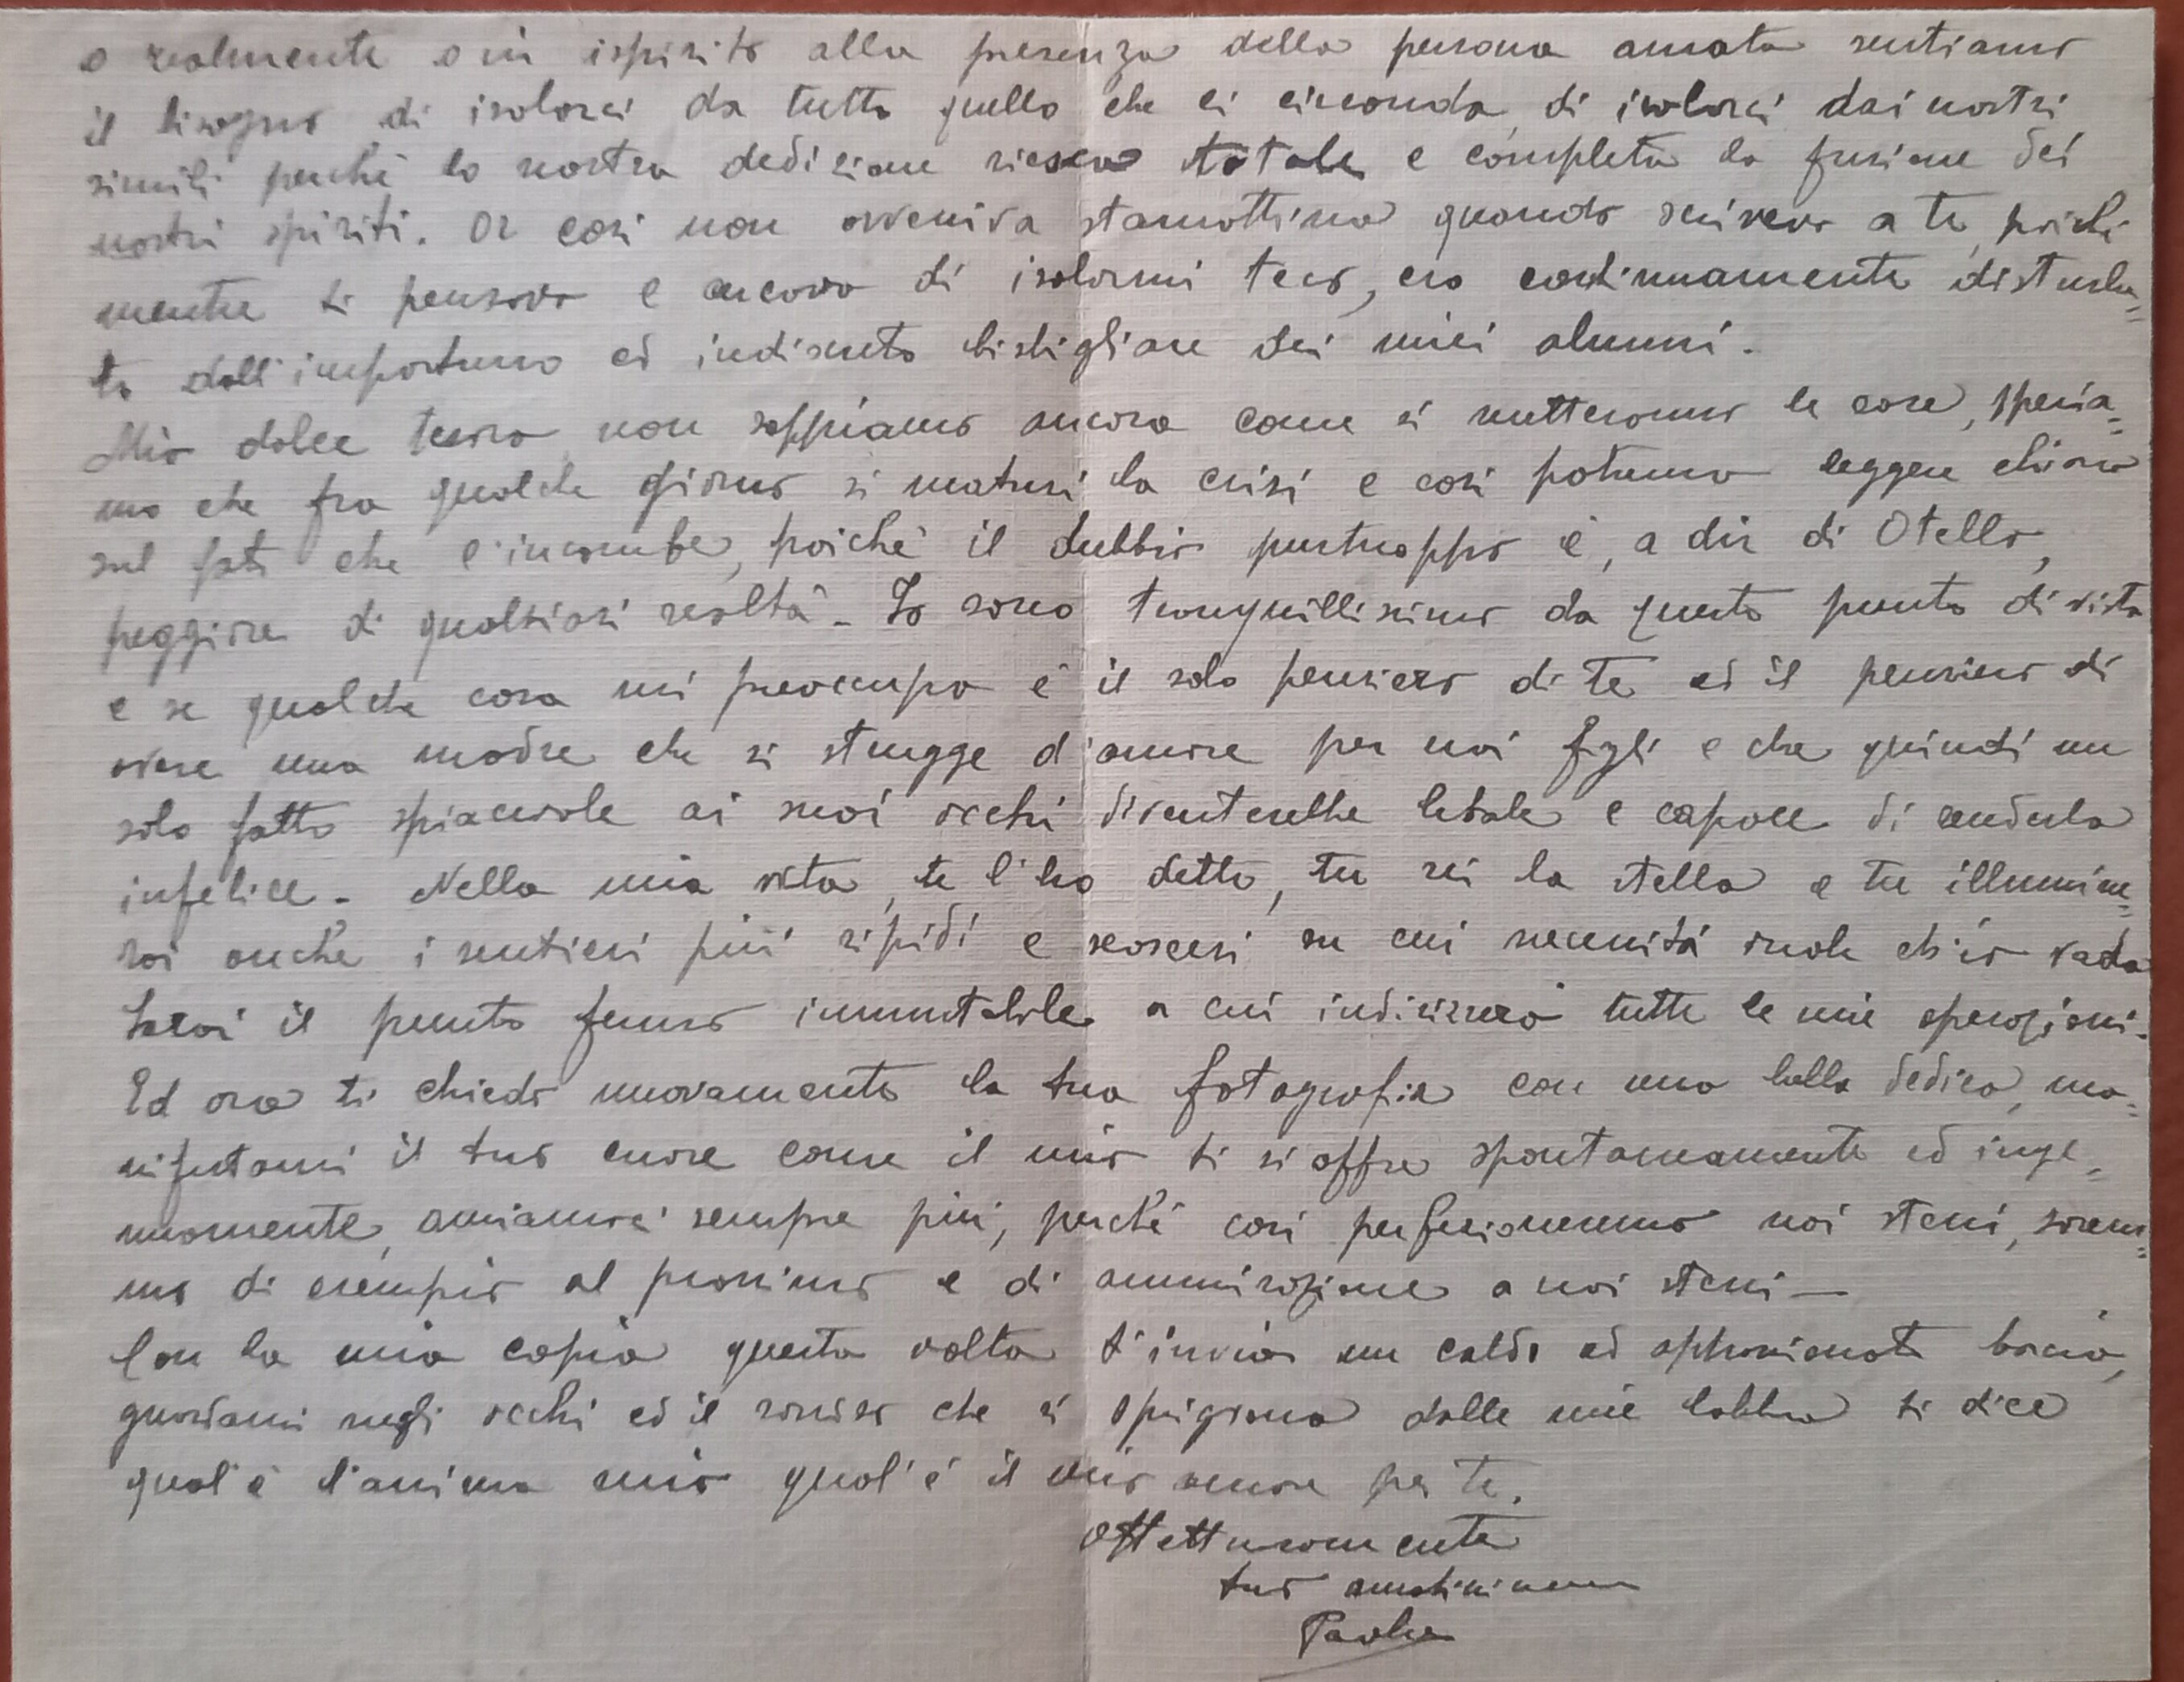 o realmente o in ispirito alla presenza della persona amata sentiamo
il bisogno di isolarci da tutto quello che ci circonda, di isolarci dai nostri
simili perchè la nostra dedizione riesca totale e completa la fusione dei
nostri spiriti. Or così non avveniva stamattina quando scrivevo a te, poichè
mentre ti pensavo e cercavo di isolarmi teco, ero continuamente disturba=
to dall'importuno ed indiscreto bisbigliare dei miei alunni.
Mio dolce tesoro non sappiamo ancora come si metteranno le cose, speria=
mo che fra qualche giorno si maturi la crisi e così potremo leggere chiaro
sul fato che c'incombe, poichè il dubbio purtroppo è, a dir di Otello,
peggiore di qualsiasi realtà. Io sono tranquillissimo da questo punto di vista
e se qualche cosa mi preoccupa è il solo pensiero di te ed il pensiero di
avere una madre che si strugge d'amore per noi figli e che quindi un
solo fatto spiacevole ai suoi occhi diventerebbe letale e capace di renderla
infelice. Nella mia vita, te l'ho detto, tu sei la stella e tu illumine=
rai anche i sentieri più ripidi e scoscesi su cui necessità vuole ch'io vada
sarai il punto fermo immutabile a cui indirizzerò tutte le mie operazioni.
Ed ora ti chiedo nuovamente la tua fotografia con una bella dedica, ma=
nifestami il tuo cuore come il mio ti si offre spontaneamente ed inge=
nuamente, amiamoci sempre più, perchè così perfezioneremo noi stessi, sarem=
mo di esempio al prossimo e di ammirazione a noi stessi —
Con la mia copia questa volta t'invio un caldo ed appassionato bacio,
guardami negli occhi ed il sorriso che si sprigiona dalle mie labbra ti dice
qual'è l'anima mia qual'è il mio amore per te.
Affettuosamente
tuo amatissimo